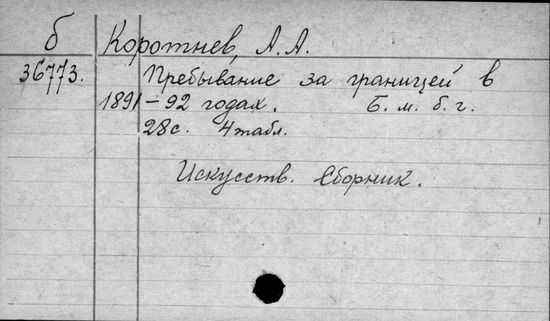 б Коротнев, А.А.
36773. Пребывание за границей в
1891-92 годах. Б. м. б. г.
28с. 4 табл.
Искусств. Сборник.